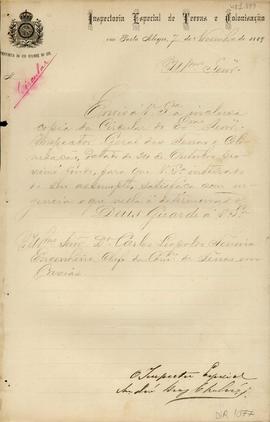 Inspectoria Especial de Terras e Colonisação
em Porto Alegre, 7 de Dezembro de 1889
Circular
Illmo Senr.
Envio a V. Sa. a inclusa
copia da Circular do Exmo Senr.
Inspector Geral das Terras e Colo
nisação, datada de 30 de Outubro, pro
ximo findo, para que V. Sa. inteirado
de seu assumpto, satisfaça com ur
gencia o que nella é determinado.
Deus Guarde a V. Sa.
Illmo Senr. Dr. Carlos
Engenheiro Chefe da Commm. de Terras em
Caxias
O Inspector Especial
DIR 1077